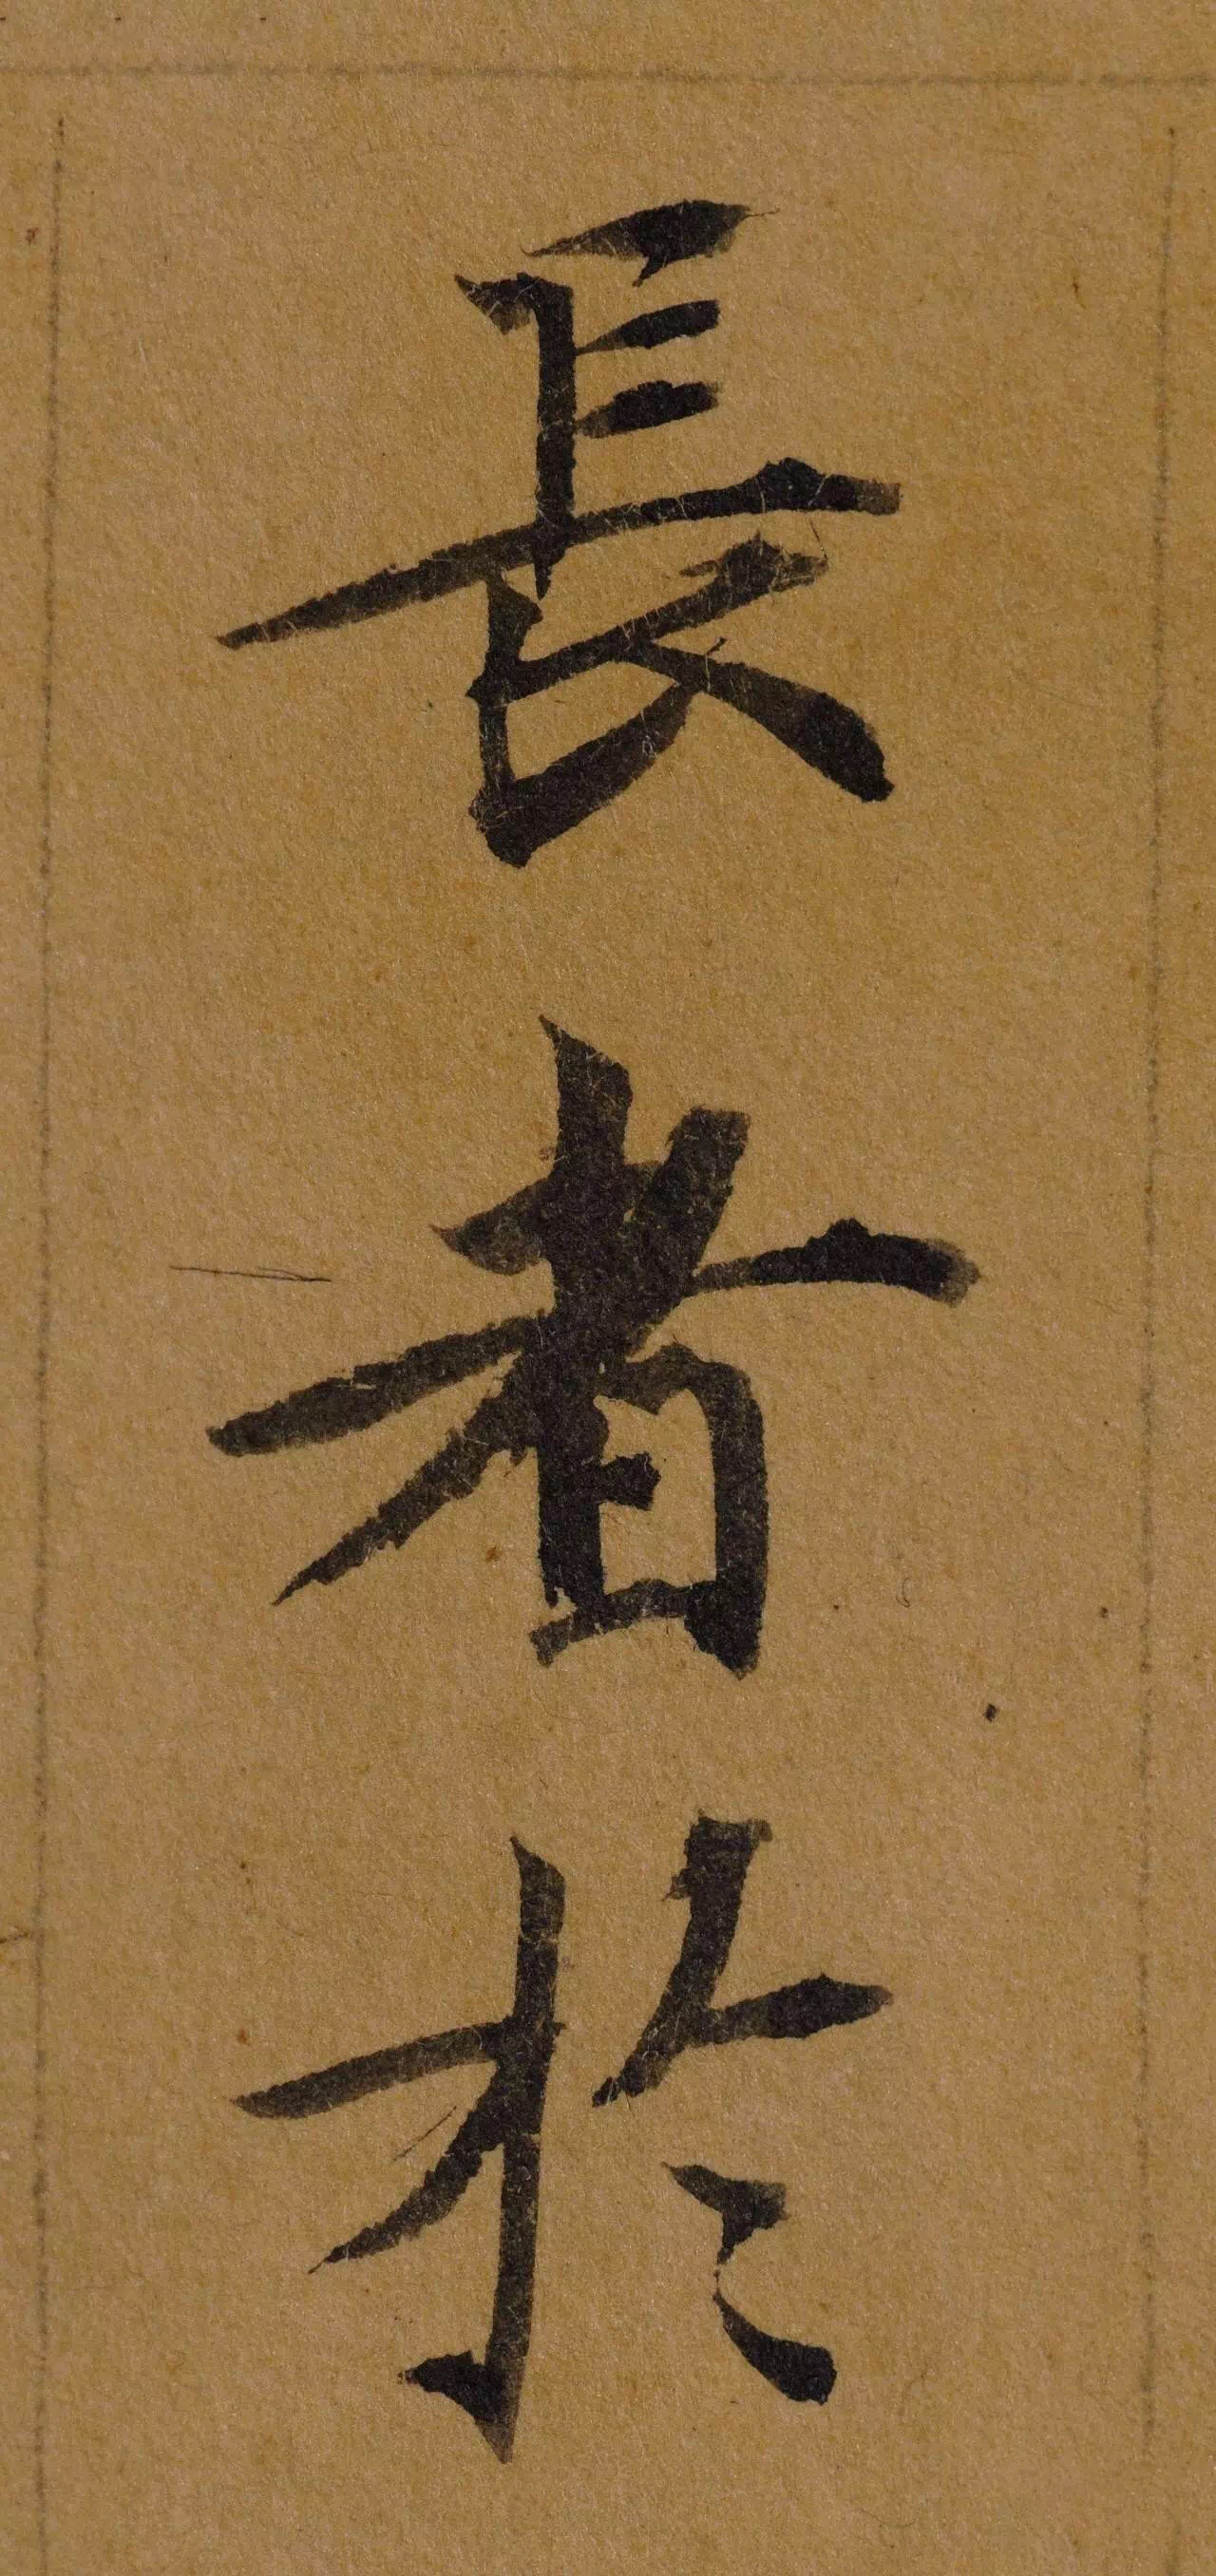 長者於